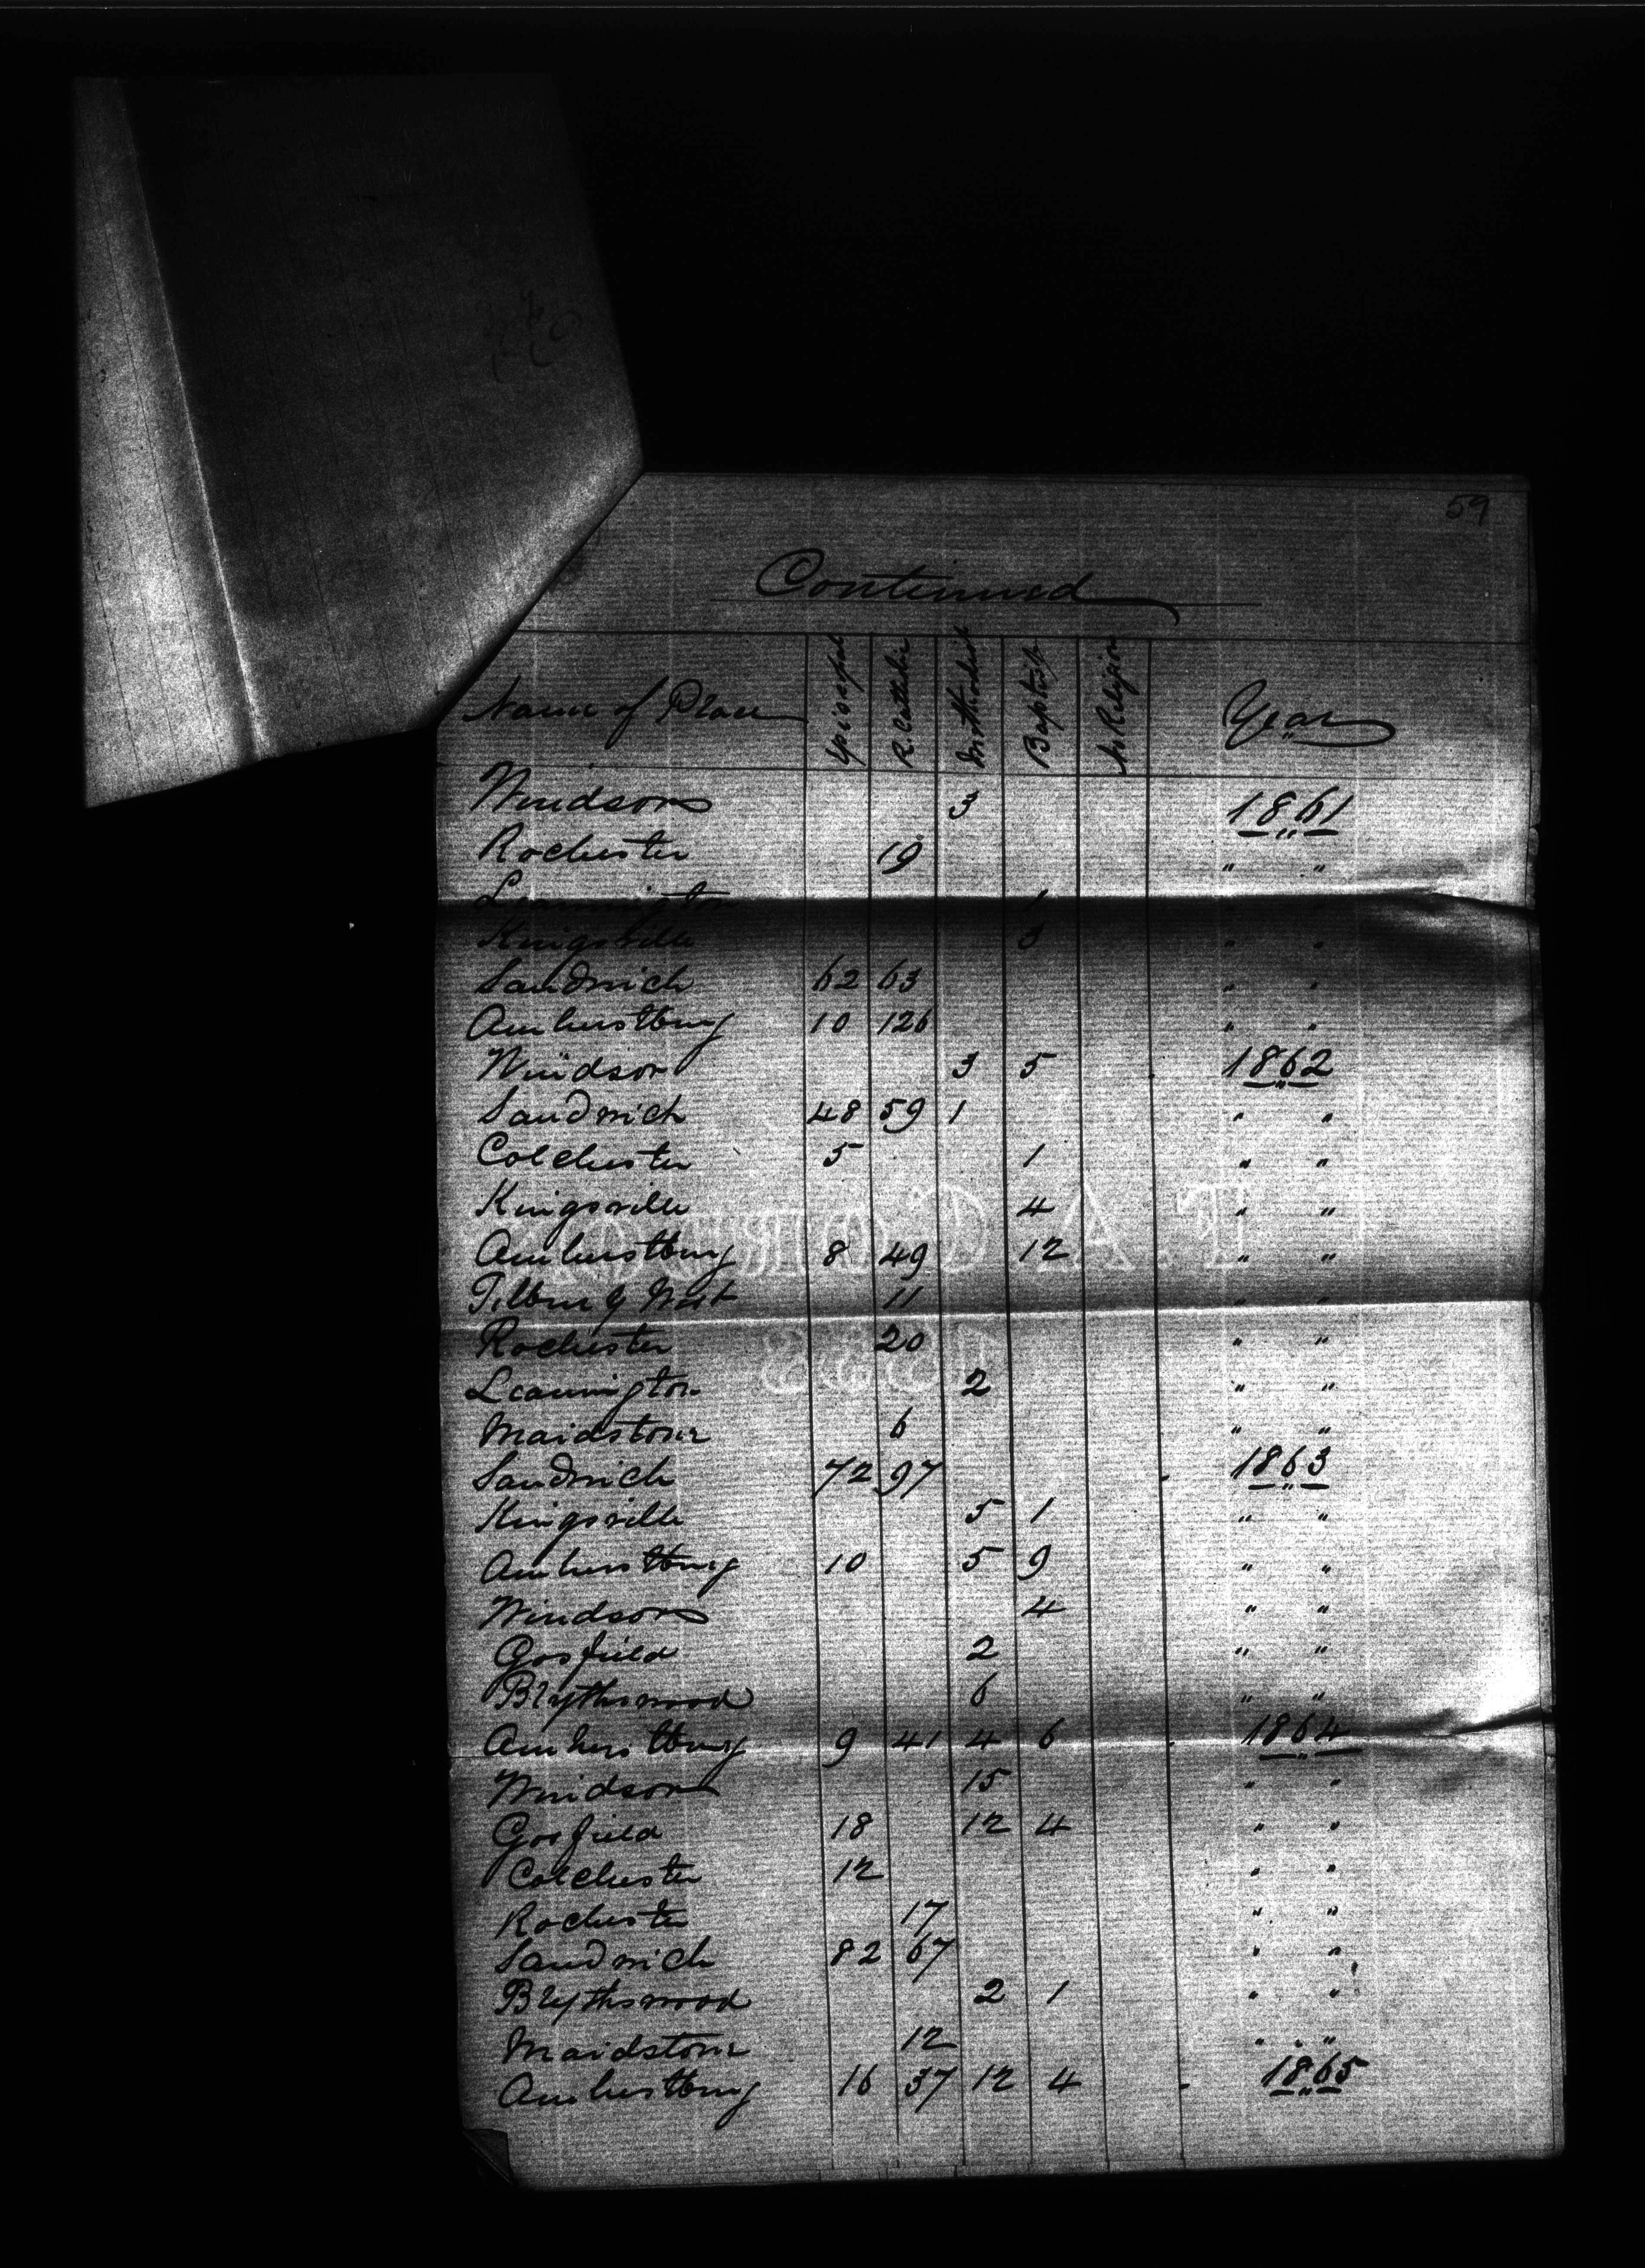 59
Continued
Name of Place Episcopal R. Catholic Methodist Baptist No Religion Year
Windsor 3 1861
Rochester 19 " "
Leamington 1 " "
Kingsville 3 " "
Sandwich 62 63 " "
Amherstburg 10 126 " "
Windsor 3 5 1862
Sandwich 48 59 1 " "
Colchester 5 1 " "
Kingsville 4 " "
Amherstburg 8 49 12 " "
Tilbury West 11 " "
Rochester 20 " "
Leamington 2 " "
Maidstone 6 " "
Sandwich 72 97 1863
Kingsville 5 1 " "
Amherstburg 10 5 9 " "
Windsor 4 " "
Gosfield 2 " "
Blythswood 6 " "
Amherstburg 9 41 4 6 1864
Windsor 15 " "
Gosfield 18 12 4 " "
Colchester 12 " "
Rochester 17 " "
Sandwich 82 67 " "
Blythswood 2 1 " "
Maidstone 12 " "
Amherstburg 16 37 12 4 1865